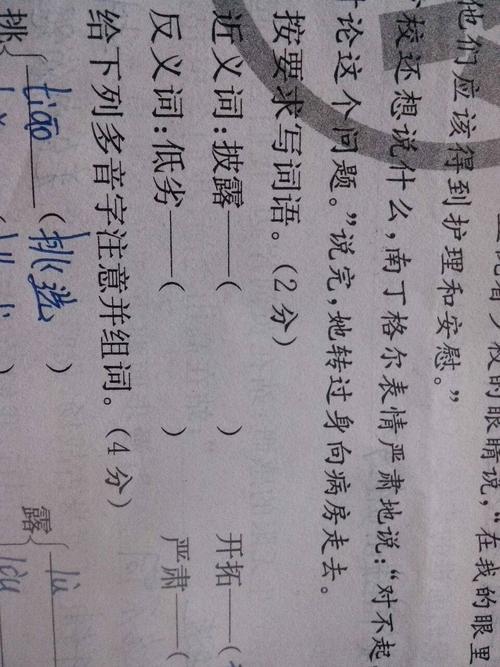 着少校的眼睛说，“在我的眼里
他们应该得到护理和安慰。”
校还想说什么，南丁格尔表情严肃地说：“对不起
论这个问题。”说完，她转过身向病房走去。
按要求写词语。（2分）
近义词：披露——（ ） 开拓——（
反义词：低劣——（ ） 严肃——（
给下列多音字注意并组词。（4分）
挑 tiāo （挑选） 露 lù
lòu